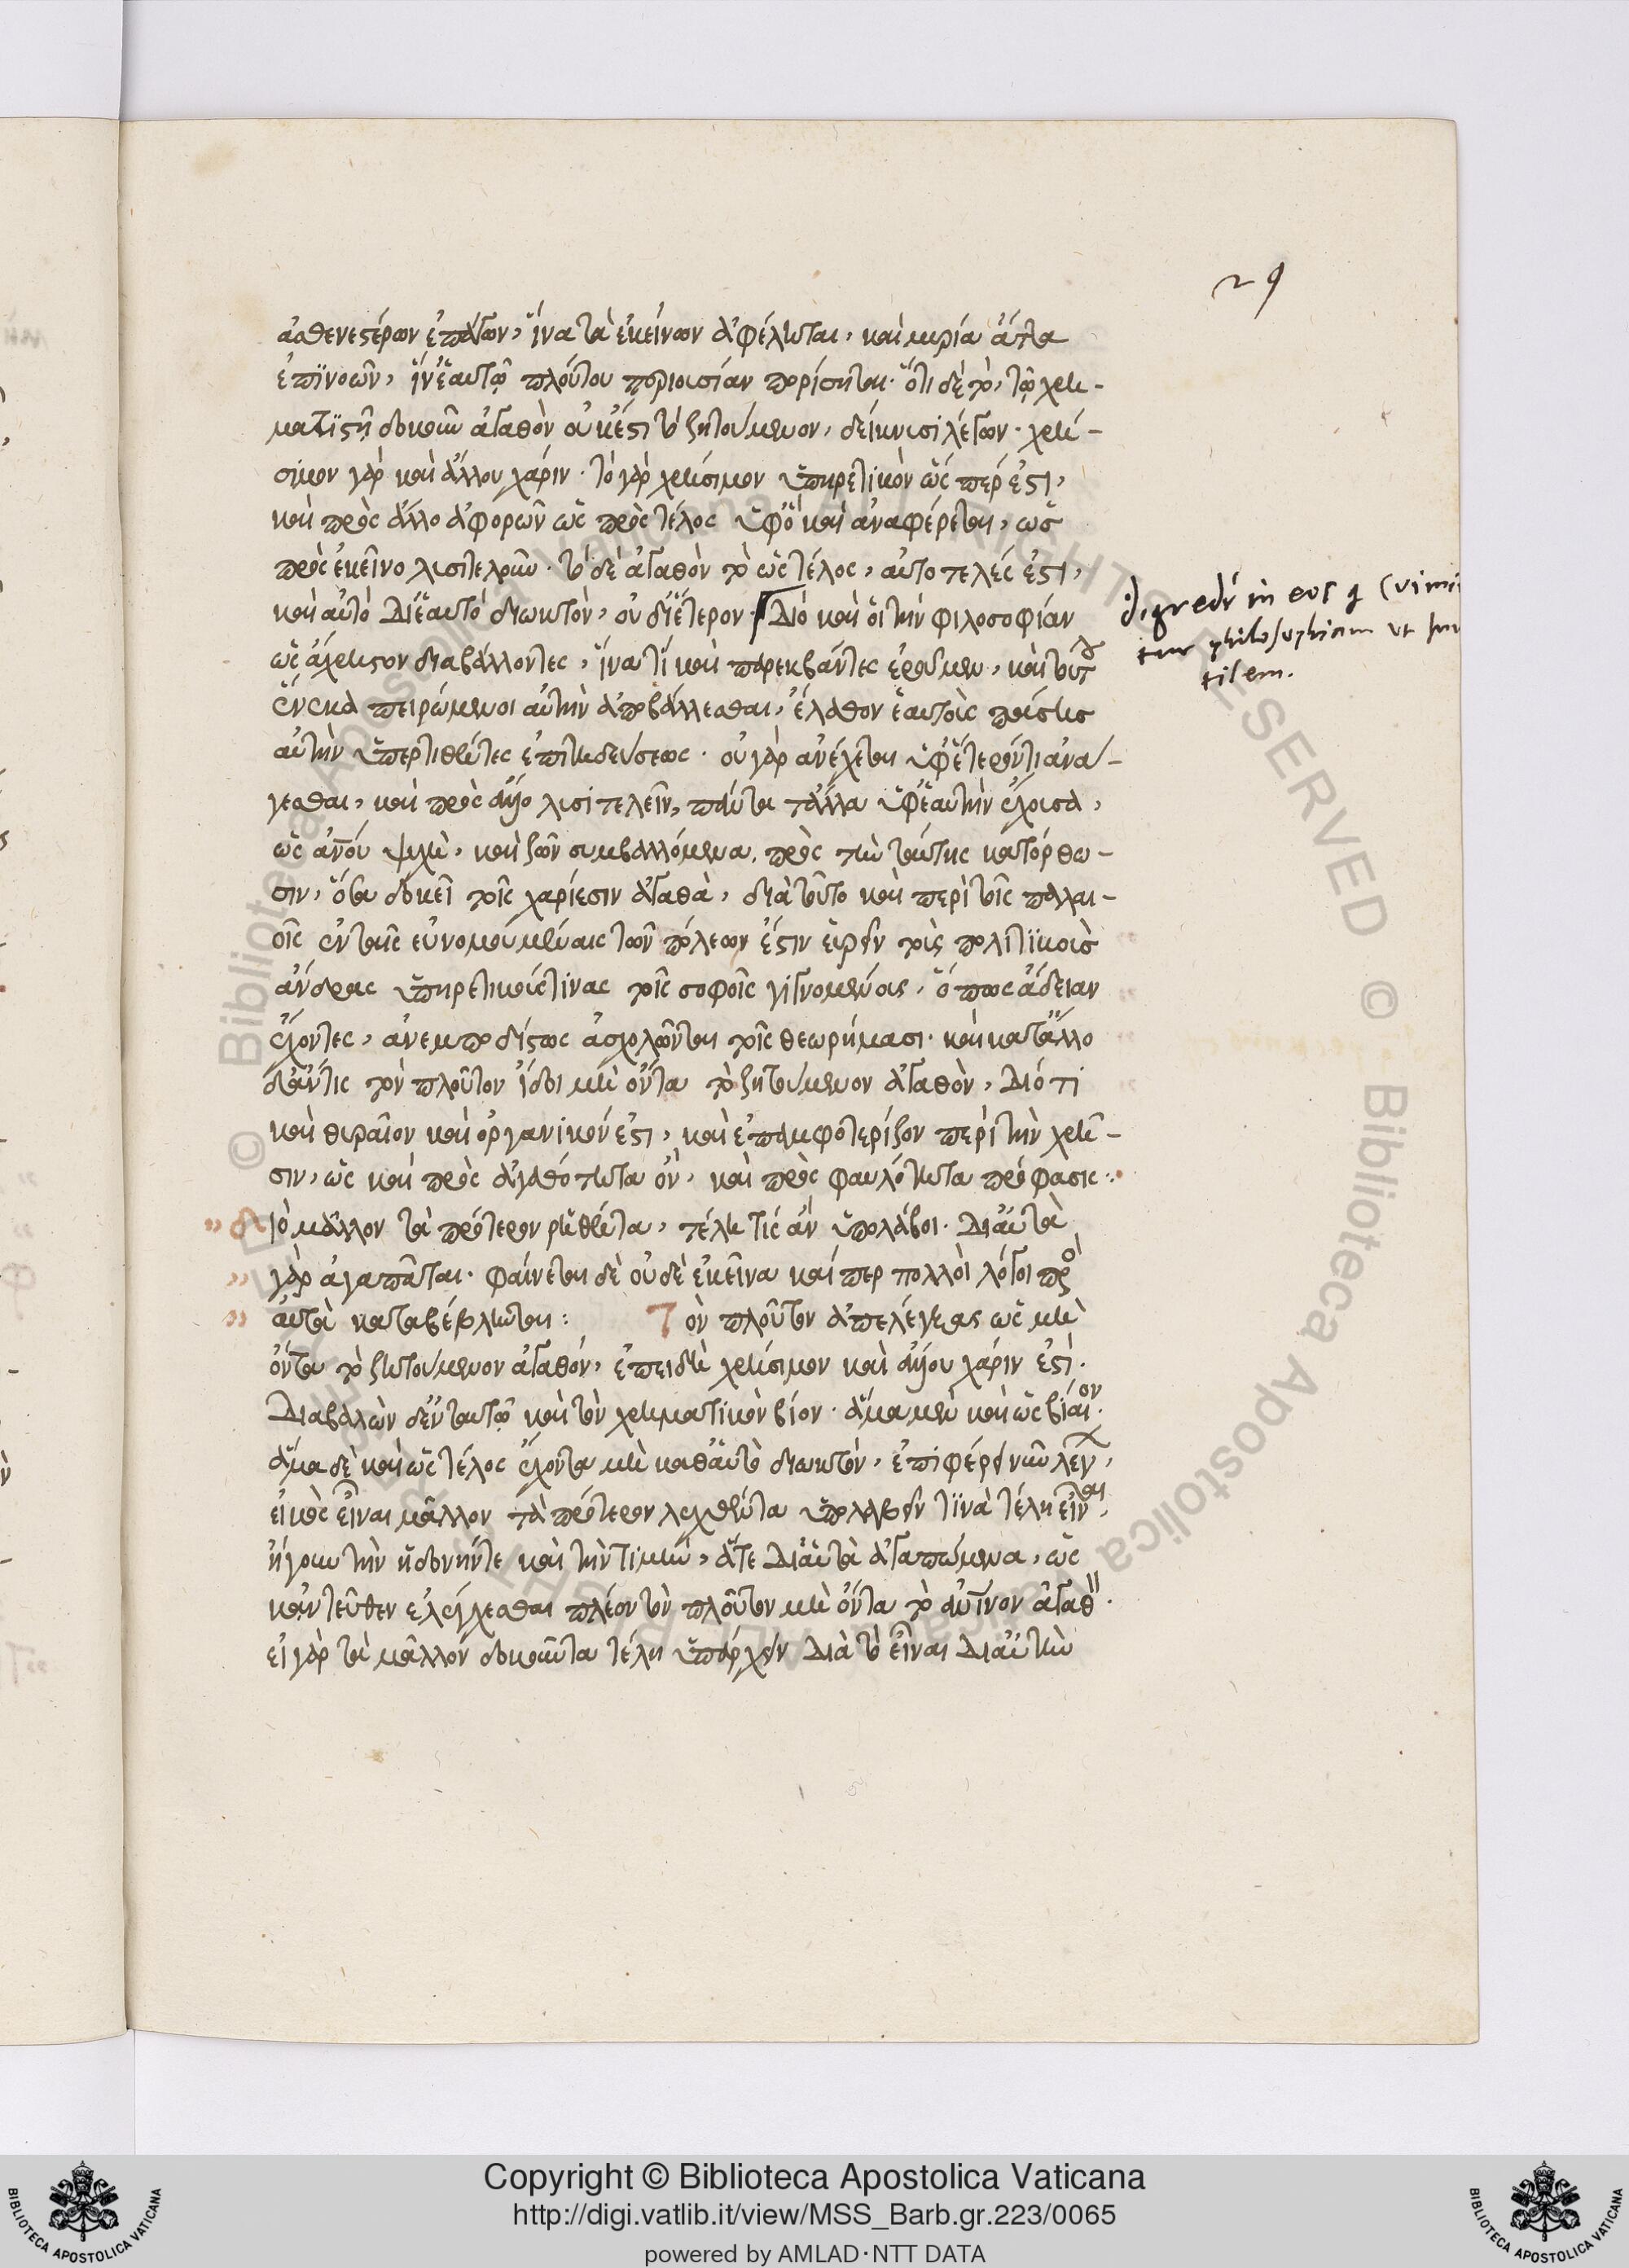 29
ἀσθενεστέρων ἐπάγων, ἵνα τὰ ἐκείνων ἀφέληται, καὶ μυρία ἄττα
ἐπϊνοῶν, ἵν' ἑαυτῷ πλούτου περιουσίαν πορίσηται. ὅτι δὲ τὸ, τῷ χρη-
ματϊστῇ δοκοῦν ἀγαθὸν οὐκ ἔστι τὸ ζητούμενον, δείκνυσι λέγων. χρή-
σιμον γὰρ καὶ ἄλλου χάριν. τὸ γὰρ χρήσιμον ὑπηρετικὸν ὥς περ ἐστι,
καὶ πρὸς ἄλλο ἀφορῶν ὡς πρὸς τέλος ὑφ' ὃ καὶ ἀναφέρεται, ὡς
πρὸς ἐκεῖνο λυσιτελοῦν. τὸ δὲ ἀγαθὸν τὸ ὡς τέλος, αὐτοτελές ἐστι,
καὶ αὐτὸ δι' ἑαυτὸ διωκτὸν, οὐ δι' ἕτερον. Διὸ καὶ οἱ τὴν φιλοσοφίαν
ὡς ἄχρηστον διαβάλλοντες, ἵνα τί καὶ παρεκβάντες ἐροῦμεν, καὶ τούτου
ἕνεκα πειρώμενοι αὐτὴν ἀποβάλλεσθαι, ἔλαθον ἑαυτοῖς πίστεις
αὐτὴν ὑπερτιθέντες ἐπιτηδεύσεως. οὐ γὰρ ἀνέχεται ὑφ' ἕτερόν τι ἀνά-
γεσθαι, καὶ πρὸς ἄλλο λυσιτελεῖν, πάντα τἄλλα ὑφ' ἑαυτὴν ἔχουσα,
ὡς ἀνου ψυχὴ, καὶ ζῶν συμβαλλόμενα πρὸς τὴν ταύτης κατόρθω-
σιν, ὅσα δοκεῖ τοῖς χαρίεσιν ἀγαθὰ, διὰ τοῦτο καὶ περὶ τοῖς παλαι-
οῖς ἐν ταῖς εὐνομουμέναις τῶν πόλεων ἔστιν εὑρεῖν τοὺς πολιτϊκοὺς
ἄνδρας ὑπηρετικούς τινας τοῖς σοφοῖς γιγνομένους, ὅπως ἄδειαν
ἔχοντες, ἀνεμποδίστως ἀσχολῶνται τοῖς θεωρήμασι. καὶ κατ' ἄλλο
δ' ἄν τις τὸν πλοῦτον ἴδοι μὴ ὄντα τὸ ζητούμενον ἀγαθὸν, Διότι
καὶ θυραῖον καὶ ὀργανικόν ἐστι, καὶ ἐπαμφοτερίζον περὶ τὴν χρῆ-
σιν, ὡς καὶ πρὸς ἀγαθότητα ὂν, καὶ πρὸς φαυλότητα πρόφασις:
Διὸ μᾶλλον τὰ πρότερον ῥηθέντα, τέλη τὶς ἂν ὑπολάβοι. Δι' αὑτὰ
γὰρ ἀγαπᾶται. φαίνεται δὲ οὐδὲ ἐκεῖνα καίπερ πολλοὶ λόγοι πρὸς
αὐτὰ καταβέβληνται: Τὸν πλοῦτον ἀπελέγξας ὡς μὴ
ὄντα τὸ ζητούμενον ἀγαθόν, ἐπειδὴ χρήσιμον καὶ ἄλλου χάριν ἐστί.
Διαβαλὼν δ' ἐν ταυτῷ καὶ τὸν χρηματικὸν βίον. ἅμα μὲν καὶ ὡς βίαιον.
ἅμα δὲ καὶ ὡς τέλος ἔχοντα μὴ καθ' αὑτὸ διωκτὸν, ἐπιφέρει νῦν λέγων,
εἰκὸς εἶναι μᾶλλον τὰ πρότερον λεχθέντα ὑπολαβεῖν τϊνὰ τέλη εἶναι,
ἤγουν τὴν ἡδονήν τε καὶ τὴν τιμὴν, ἅτε δι' αὑτὰ ἀγαπώμενα, ὡς
κἀντεῦθεν ἐλέγχεσθαι πλέον τὸν πλοῦτον μὴ ὄντα τὸ ἀνϊνον ἀγαθόν.
εἰ γὰρ τὰ μᾶλλον δοκοῦντα τέλη ὑπάρχειν διὰ τὸ εἶναι δι' αὑτὴν
digredr in eos q
tur philosophiam ut inu
tilem.
Copyright © Biblioteca Apostolica Vaticana
http://digi.vatlib.it/view/MSS_Barb.gr.223/0065
powered by AMLAD·NTT DATA